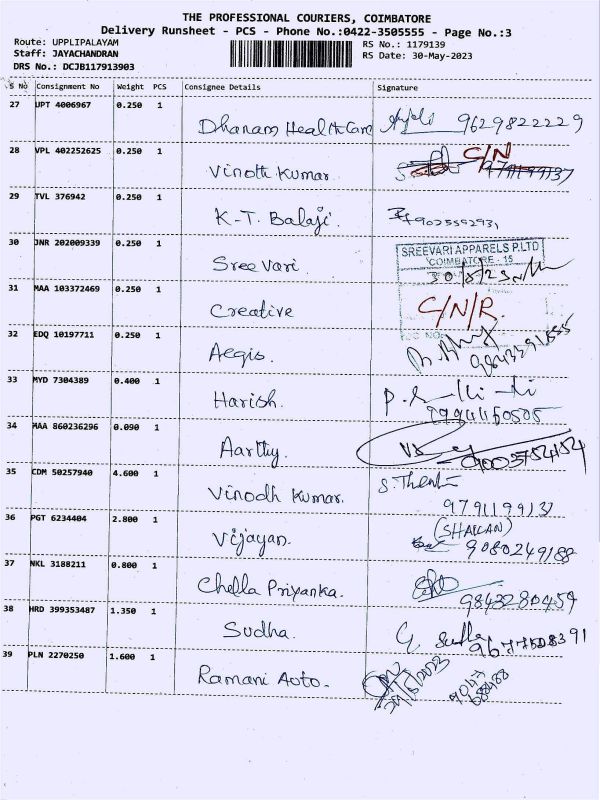 THE PROFESSIONAL COURIERS, COIMBATORE
Delivery Runsheet - PCS - Phone No.:0422-3505555 - Page No.:3
Route: UPPLIPALAYAM RS No.: 1179139
Staff: JAYACHANDRAN RS Date: 30-May-2023
DRS No.: DCJB117913903
S No Consignment No Weight PCS Consignee Details Signature
27 UPT 4006967 0.250 1
Dhanam HealthCare 9629822229
28 VPL 402252625 0.250 1 C/N
Vinoth Kumar 9791199137
29 TVL 376942 0.250 1
K-T. Balaji.
30 JNR 202009339 0.250 1
SREEVARI APPARELS P.LTD
COIMBATORE - 15
Sree Vari. 30/5/23
31 MAA 103372469 0.250 1
Creative C/N/R.
32 EDQ 10197711 0.250 1
Aegis.
33 MYD 7304389 0.400 1
Harish.
34 MAA 860236296 0.090 1
Aarthy. 9003754154
35 CDM 50257940 4.600 1
Vinodh Kumar.
9791199137
36 PGT 6234404 2.800 1 (SHAILAN)
Vijayan. 9080249188
37 NKL 3188211 0.800 1
Chella Priyanka. 9843280459
38 HRD 399353487 1.350 1
Sudha. 9677508391
39 PLN 2270250 1.600 1
Ramani Auto.